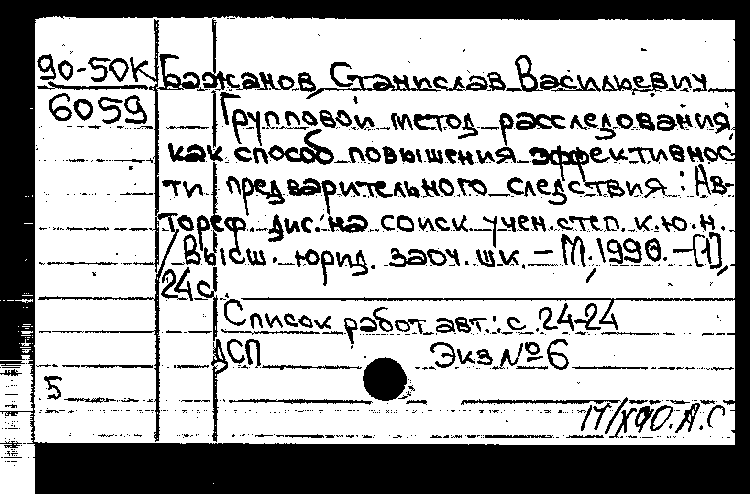 90-50К Бажанов, Станислав Васильевич
6059 Групповой метод расследования
как способ повышения эффективнос
ти предварительного следствия: Ав-
тореф. дис. на соиск. учен. степ. к.ю.н.
/ Высш. юрид. заоч. шк. - М., 1990. - [1],
24 с.
Список работ авт.: с. 24-24
ДСП Экз №6
5
17/X90. А.С